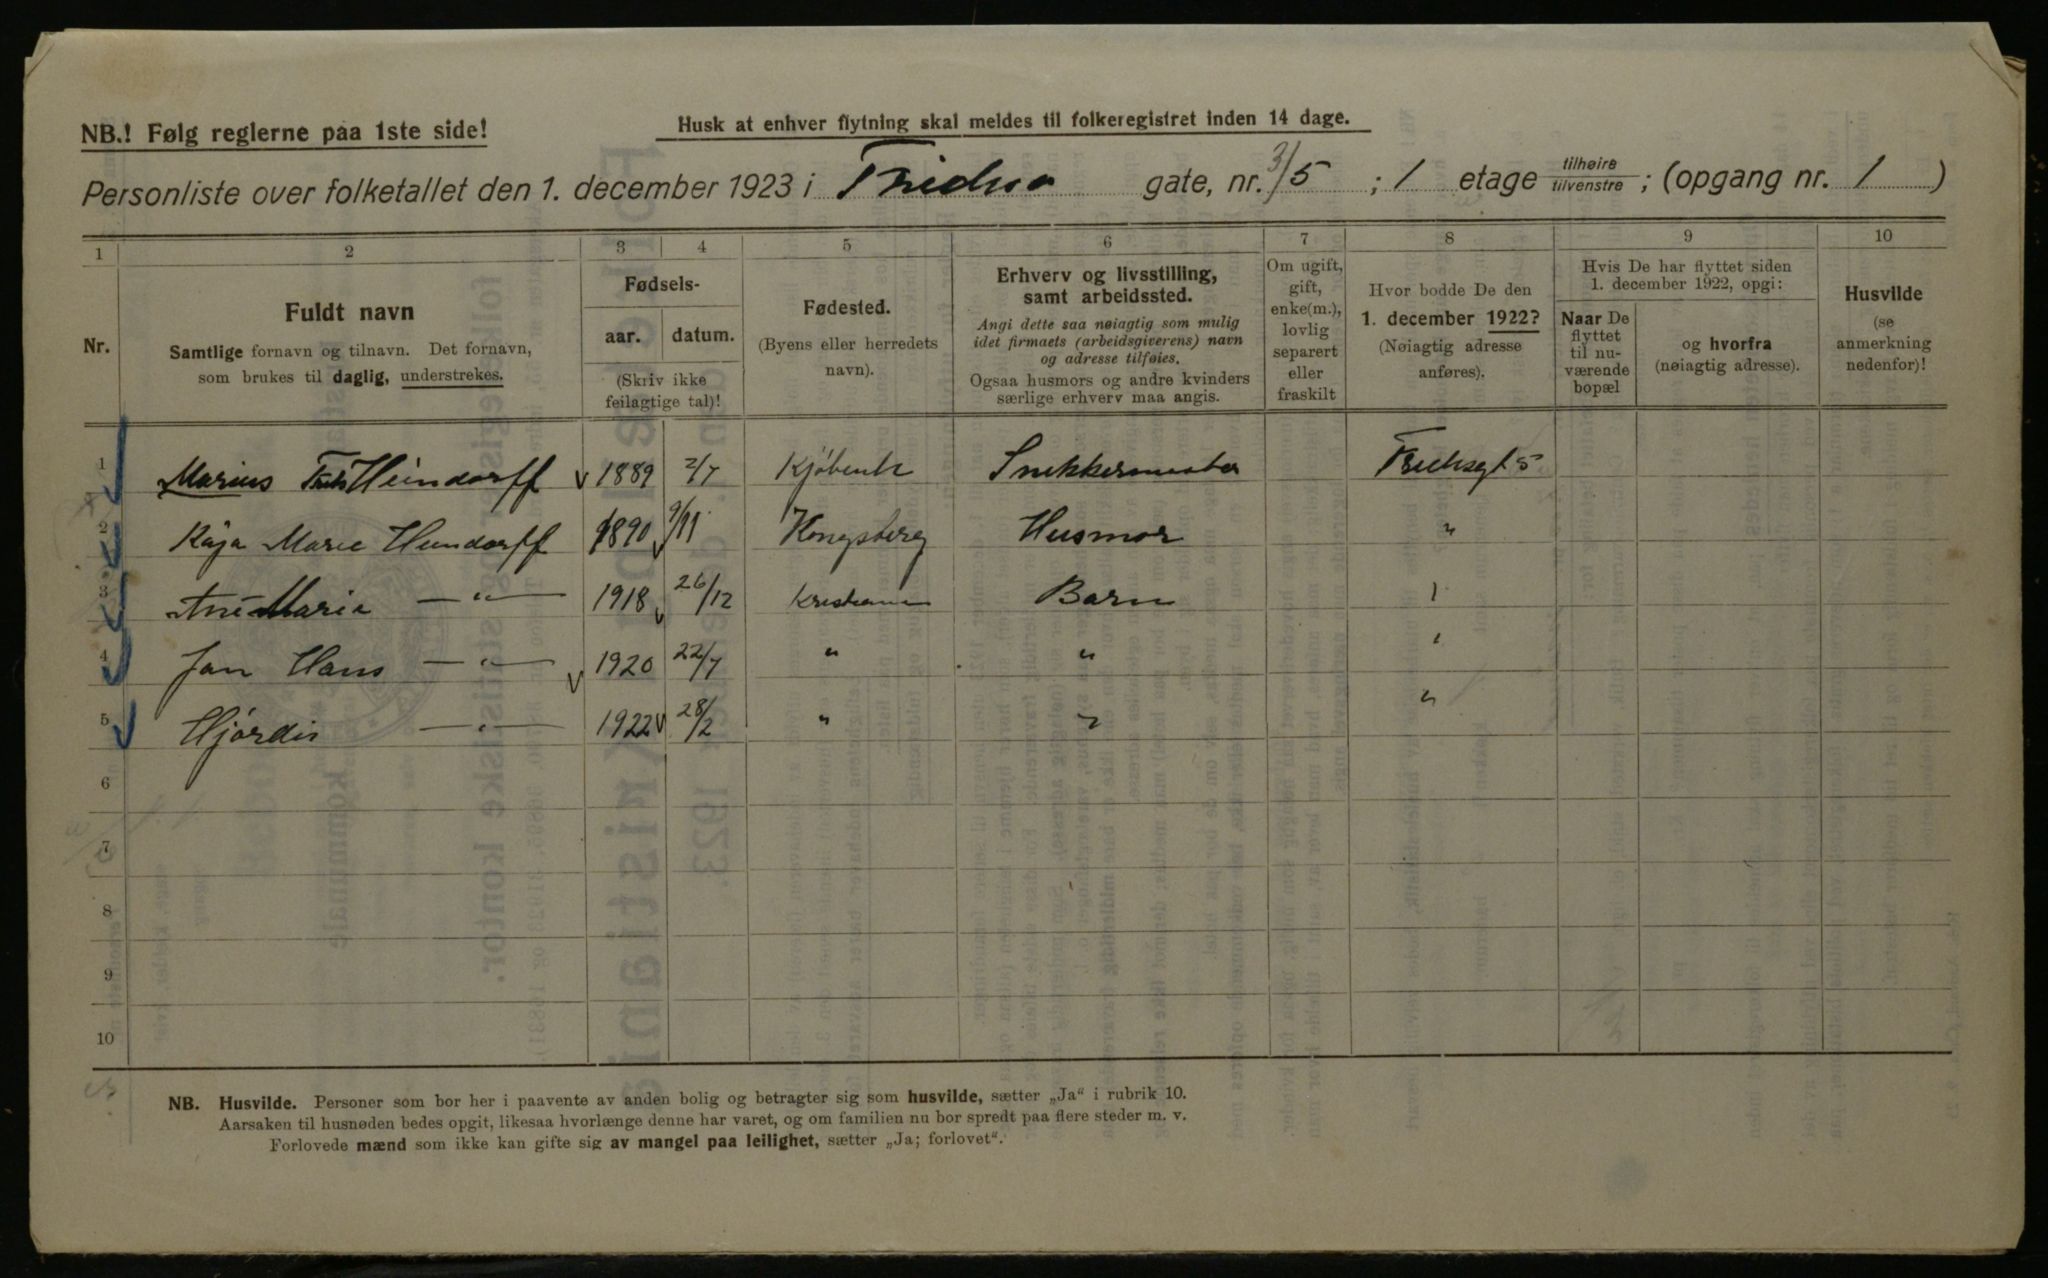 NB.! Følg reglerne paa 1ste side!
Husk at enhver flytning skal meldes til folkeregistret inden 14 dage.
Personliste over folketallet den 1. december 1923 i gate, nr. 3/5 ; 1 etage tilhøire tilvenstre ; (opgang nr. 1 )
1 2 3 4 5 6 7 8 9 10
Nr.
Fuldt navn
Samtlige fornavn og tilnavn. Det fornavn,
som brukes til daglig, understrekes.
Fødsels-
aar. datum.
(Skriv ikke
feilagtige tal)!
Fødested.
(Byens eller herredets
navn).
Erhverv og livsstilling,
samt arbeidssted.
Angi dette saa nøiagtig som mulig
idet firmaets (arbeidsgiverens) navn
og adresse tilføies.
Ogsaa husmors og andre kvinders
særlige erhverv maa angis.
Om ugift,
gift,
enke(m.),
lovlig
separert
eller
fraskilt
Hvor bodde De den
1. december 1922?
(Nøiagtig adresse
anføres).
Hvis De har flyttet siden
1. december 1922, opgi:
Naar De
flyttet
til nu-
værende
bopæl
og hvorfra
(nøiagtig adresse).
Husvilde
(se
anmerkning
nedenfor)!
1 Marius Heindorff 1889 2/7 Kjøbenh Snekkermester
2 Kaja Marie Heindorff 1890 9/11 Kongsberg Husmor "
3 Marie — " — 1918 26/12 Barn "
4 Jan Hans — " — 1920 22/7 " " "
5 Hjørdis — " — 1922 28/2 " " "
6
7
8
9
10
NB. Husvilde. Personer som bor her i paavente av anden bolig og betragter sig som husvilde, sætter „Ja“ i rubrik 10.
Aarsaken til husnøden bedes opgit, likesaa hvorlænge denne har varet, og om familien nu bor spredt paa flere steder m. v.
Forlovede mænd som ikke kan gifte sig av mangel paa leilighet, sætter „Ja; forlovet“.